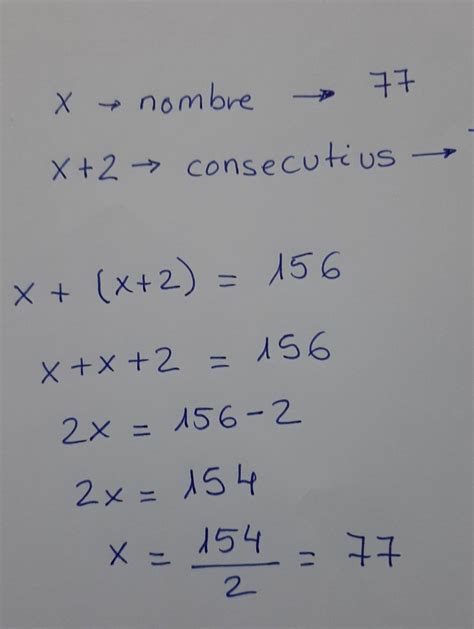 x → nombre → 77
x+2 → consecutius →
x + (x+2) = 156
x+x+2 = 156
2x = 156-2
2x = 154
x = 154/2 = 77